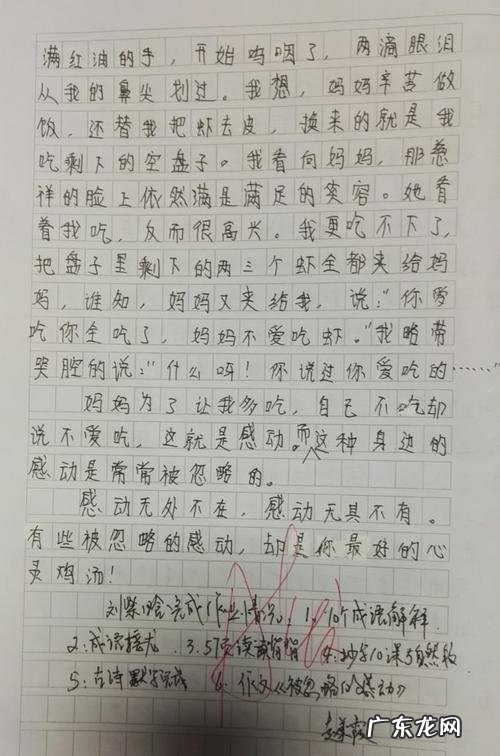 满红油的手，开始呜咽了，两滴眼泪
从我的鼻尖划过。我想，妈妈辛苦做
饭，还替我把虾去皮，换来的就是我
吃剩下的空盘子。我看向妈妈，那慈
祥的脸上依然满是满足的笑容。她看
着我吃，反而很高兴。我更吃不下了，
把盘子里剩下的两三个虾全都夹给妈
妈，谁知，妈妈又夹给我，说："你爱
吃你全吃了，妈妈不爱吃虾。"我略带
哭腔的说："什么呀！你说过你爱吃的……"
妈妈为了让我多吃，自己不吃却
说不爱吃，这就是感动。而这种身边的
感动是常常被忽略的。
感动无处不在，感动无具不有。
有些被忽略的感动，却是你最好的心
灵鸡汤！
完成作业情况：1.10个成语解释
2.成语接龙 3.57页读读背背 4.抄写10课
5.古诗默写完 6.作文《被忽略的感动》
广东龙网